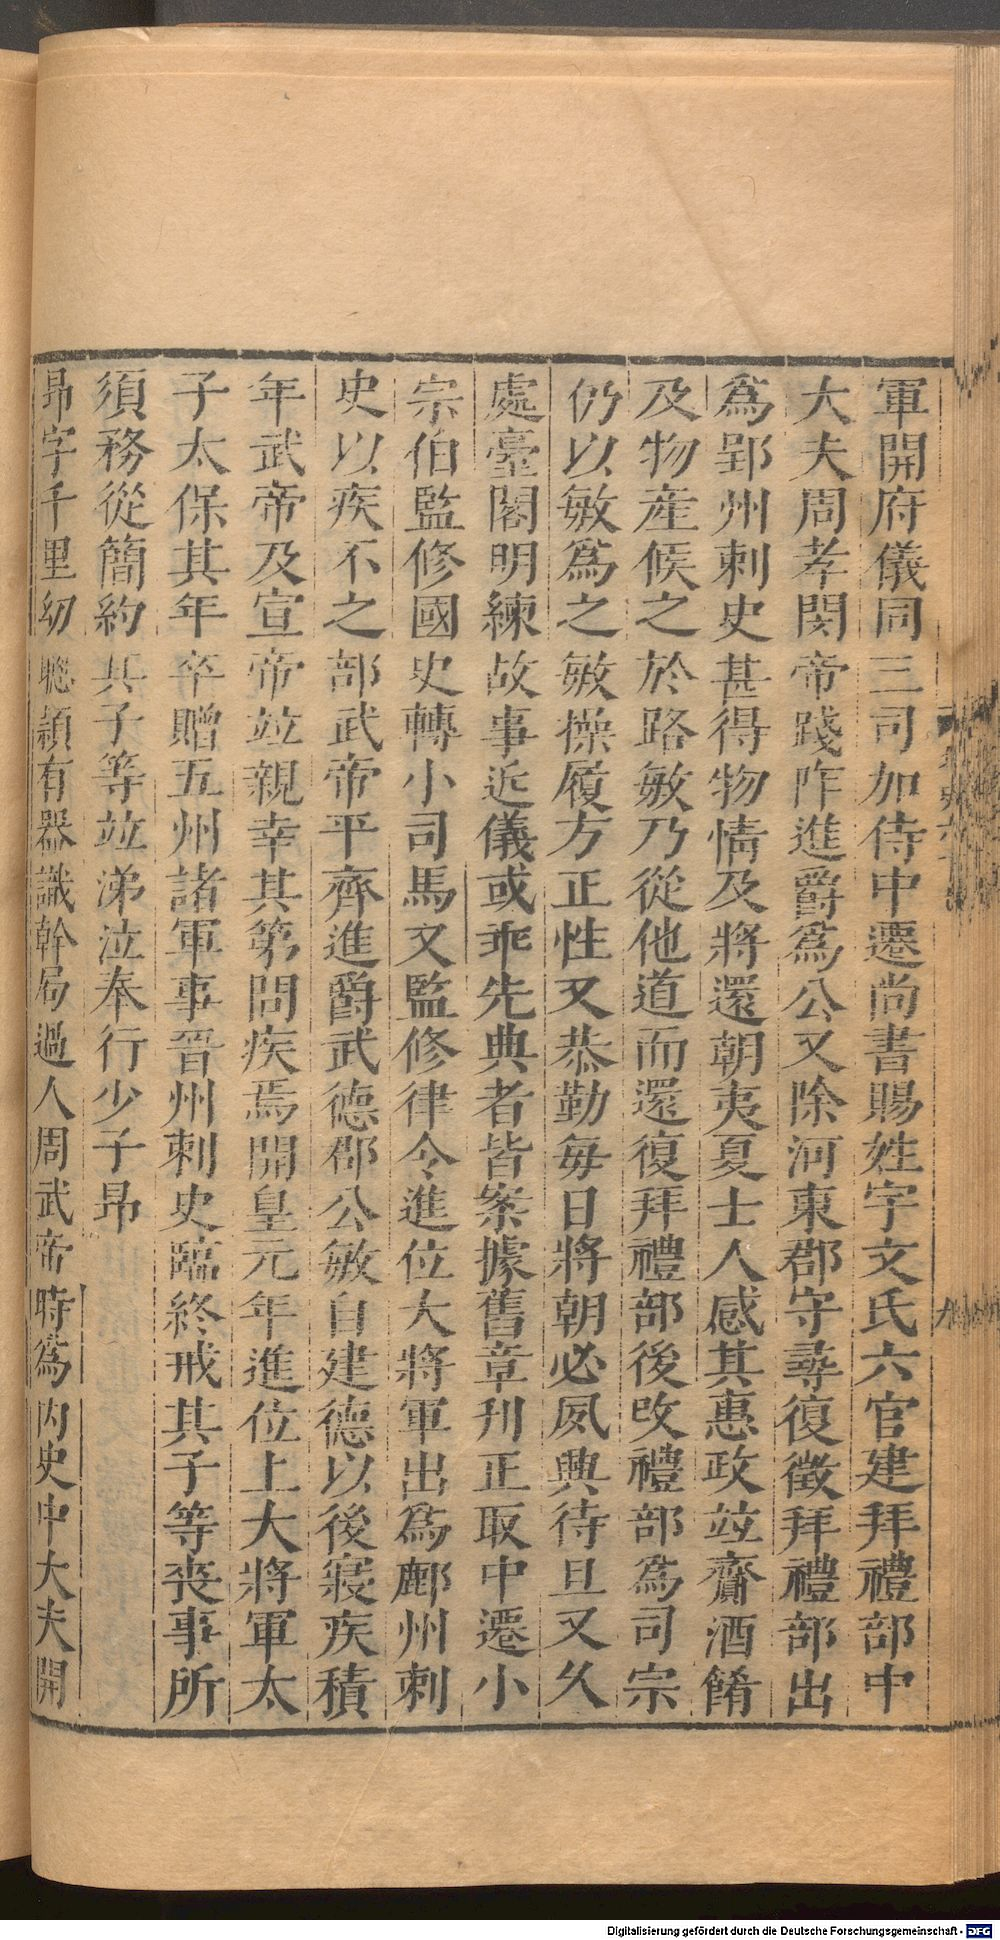 軍開府儀同三司加侍中遷尚書賜姓宇文氏六官建拜禮部中
大夫周孝閔帝踐阼進爵爲公又除河東郡守尋復徵拜禮部出
爲郢州刺史甚得物情及將還朝夷夏士人感其惠政竝齎酒餚
及物產候之於路敏乃從他道而還復拜禮部後改禮部爲司宗
仍以敏爲之敏操履方正性又恭勤每日將朝必夙興待旦又久
處臺閣明練故事近儀或乖先典者皆案據舊章刊正取中遷小
宗伯監修國史轉小司馬又監修律令進位大將軍出爲鄜州刺
史以疾不之部武帝平齊進爵武德郡公敏自建德以後寢疾積
年武帝及宣帝竝親幸其第問疾焉開皇元年進位上大將軍太
子太保其年卒贈五州諸軍事晉州刺史臨終戒其子等喪事所
須務從簡約其子等竝涕泣奉行少子昂
昂字千里幼聰穎有器識幹局過人周武帝時爲內史中大夫開
九
Digitalisierung gefördert durch die Deutsche Forschungsgemeinschaft - DFG